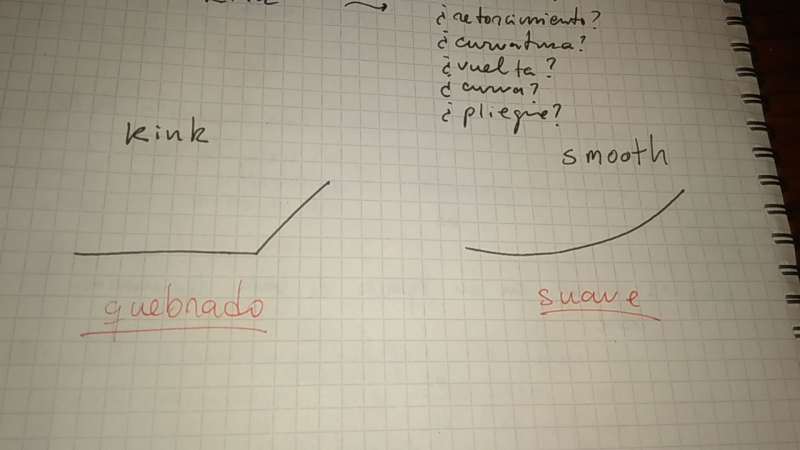 ¿retorcimiento?
¿curvatura?
¿vuelta?
¿curva?
¿pliegue?
kink
smooth
quebrado
suave